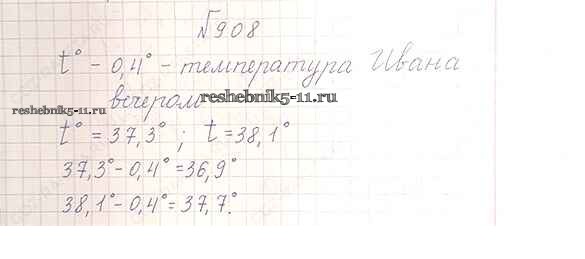 №908
t° - 0,4° - температура Ивана
вечером
reshebnik5-11.ru reshebnik5-11.ru
t° = 37,3° ; t = 38,1°
37,3° - 0,4° = 36,9°
38,1° - 0,4° = 37,7°.